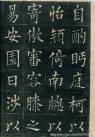 自酌眄庭柯以
怡顏倚南窻以
寄傲審容膝之
易安園日涉以